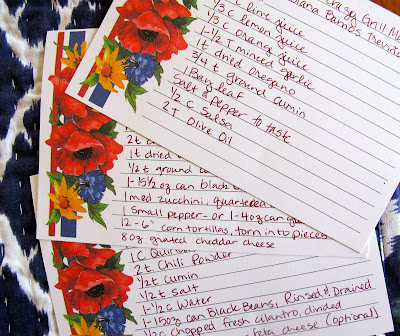 Crazy Grill
⅓ c lime juice
⅓ c lemon juice
⅓ c orange juice
1-½ T minced garlic
1t dried oregano
¾ t ground cumin
1 Bay leaf
Salt & Pepper to taste
½ c Salsa
2 T Olive Oil
2t
1t dried
½t ground
1-15½ oz can black
1 med zucchini, quartered
1 small pepper- or 1-4oz can
12-6" corn tortillas, torn into pieces
8oz grated cheddar cheese
1 C
2t Chili Powder
½t Cumin
½t Salt
1-½c Water
1-15oz can Black Beans, Rinsed & Drained
½c Chopped fresh cilantro, divided
feta cheese (optional)